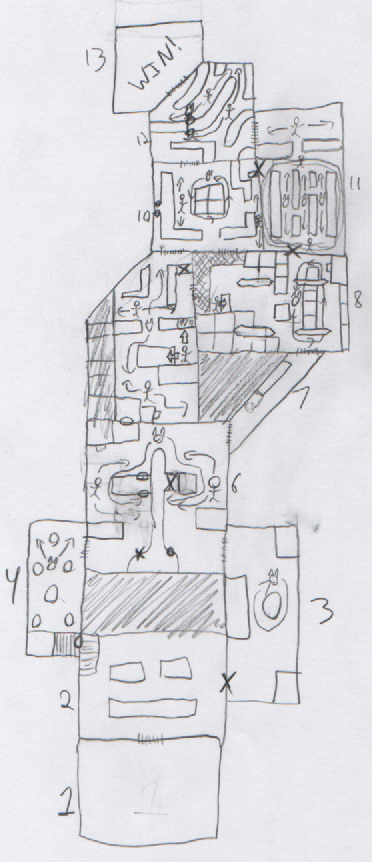 13
WIN!
12
11
10
8
7
6
4
3
2
1